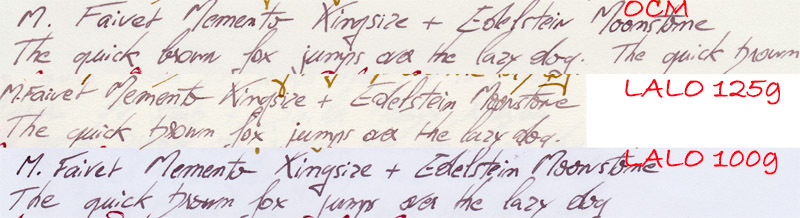 M. Faivet Memento Xingsize + Edelstein Moonstone
OCM
The quick brown fox jumps over the lazy dog. The quick brown
M. Faivet Memento Xingsize + Edelstein Moonstone
LALO 125g
The quick brown fox jumps over the lazy dog.
M. Faivet Memento Xingsize + Edelstein Moonstone
LALO 100g
The quick brown fox jumps over the lazy dog